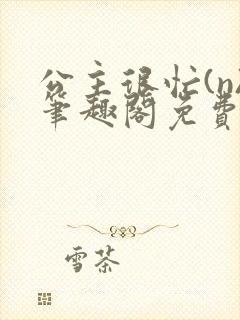 公主很忙(n
笔趣阁免费
雪茶